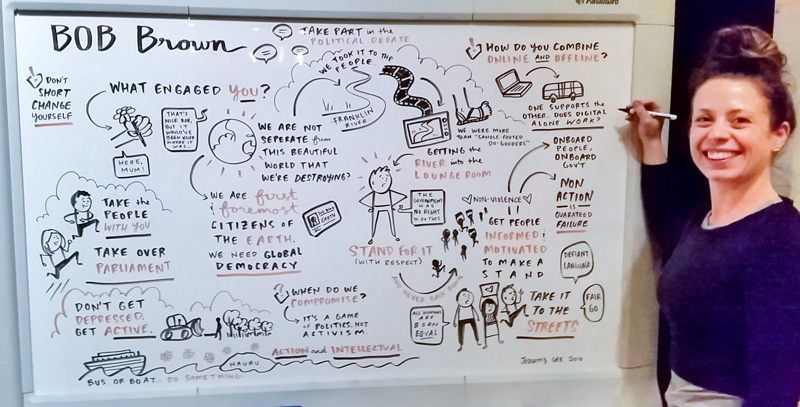 BOB Brown
TAKE PART in the
POLITICAL DEBATE
DON'T
SHORT
CHANGE
YOURSELF
WHAT ENGAGED YOU?
THAT'S
NICE BOB,
BUT IT
WOULD'VE
BEEN NICER
WHERE IT
WAS...
HERE,
MUM!
WE TOOK IT TO THE
PEOPLE
FRANKLIN
RIVER
WE ARE NOT
SEPERATE from
THIS BEAUTIFUL
WORLD THAT
WE'RE DESTROYING?
WE ARE first
& foremost
CITIZENS OF
THE EARTH.
WE NEED GLOBAL
DEMOCRACY
TAKE the
PEOPLE
WITH YOU
TAKE OVER
PARLIAMENT
DON'T GET
DEPRESSED.
GET ACTIVE.
BUS OR BOAT... DO SOMETHING
NAURU
ACTION and INTELLECTUAL
WHEN DO WE
COMPROMISE?
IT'S A GAME
OF POLITICS, NOT
ACTIVISM
GETTING the
RIVER into the
LOUNGE ROOM
THE
GOVERNMENT
HAS
NO RIGHT
TO DO THIS
STAND FOR IT
(WITH RESPECT)
WE WERE MORE
THAN "SANDLE-FOOTED
DO-GOODERS"
HOW DO YOU COMBINE
ONLINE AND OFFLINE?
ONE SUPPORTS the
OTHER... DOES DIGITAL
ALONE WORK?
ONBOARD
PEOPLE,
ONBOARD
GOV'T
NON
ACTION
IS
GUARATEED
FAILURE
NON-VIOLENCE
GET PEOPLE
INFORMED &
MOTIVATED
TO MAKE A
STAND
DEFIANT
LANGUAGE
FAIR
GO
TAKE IT
TO THE
STREETS
ALL HUMANS
ARE
BORN
EQUAL
JESSAMY GEE 2016
Panaboard